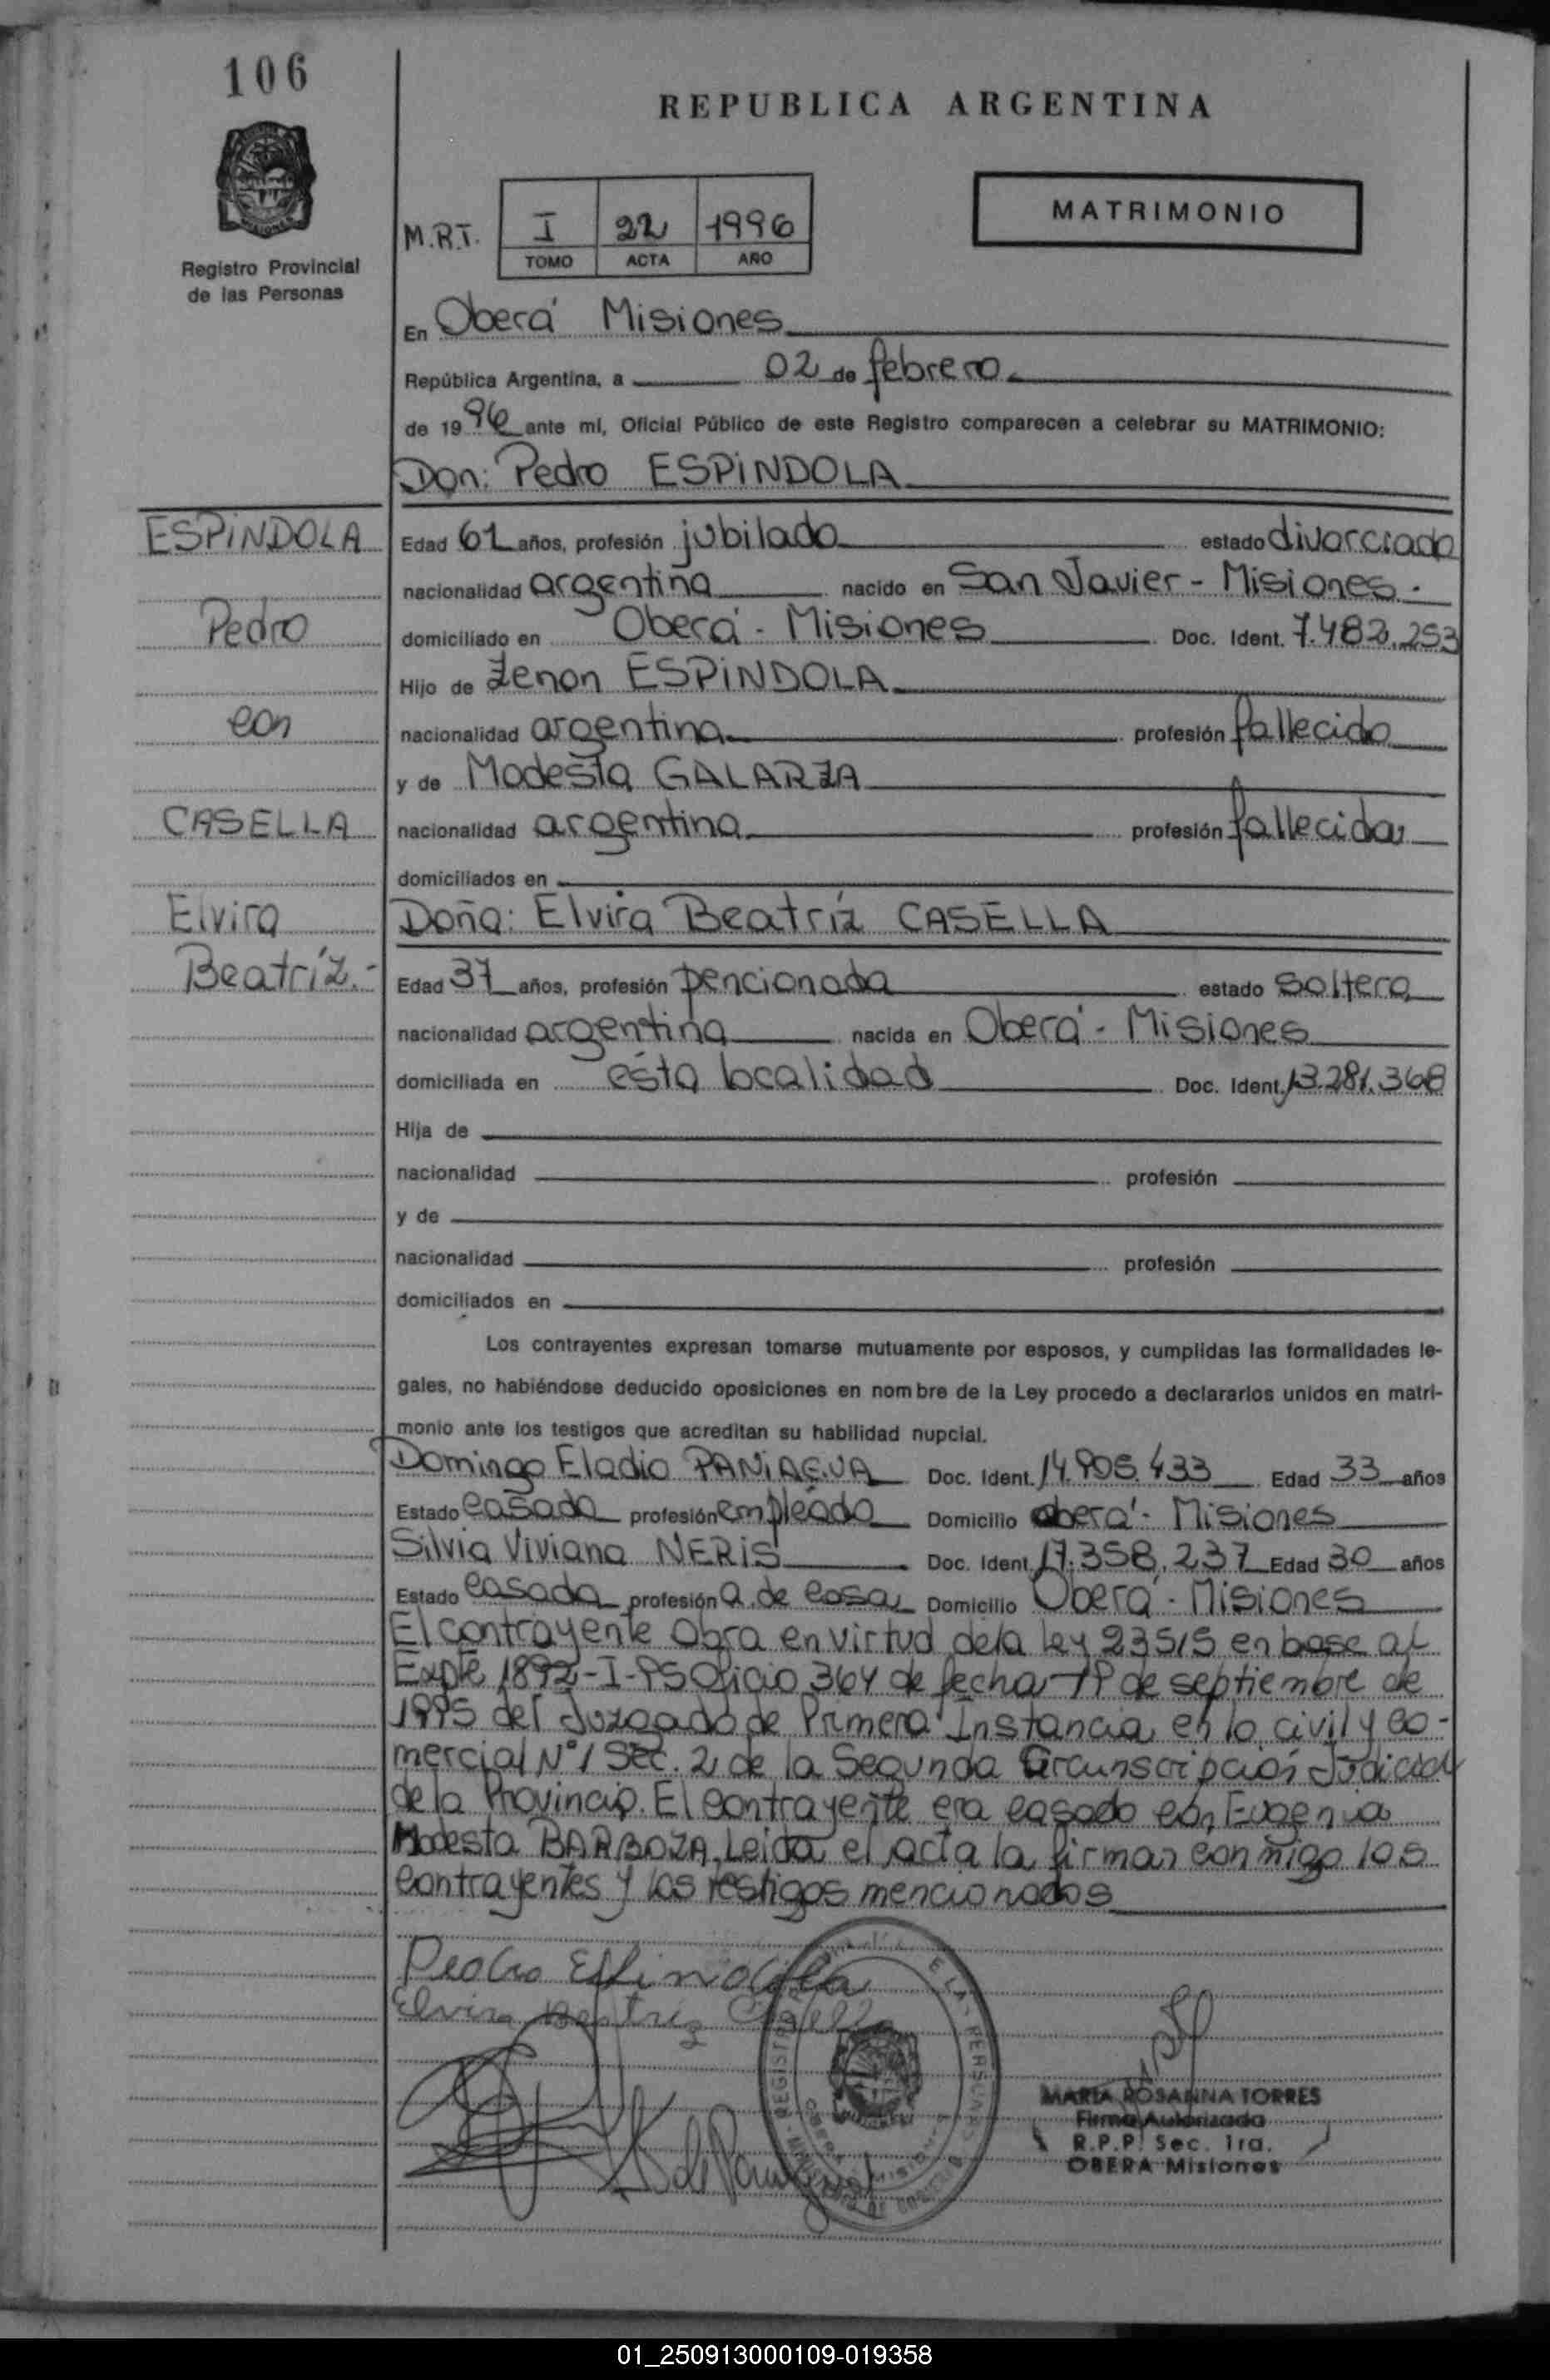 106
REPUBLICA ARGENTINA
MATRIMONIO
M.R.T. I 22 1996
TOMO ACTA AÑO
Registro Provincial
de las Personas
En Oberá Misiones
República Argentina, a 02 de febrero
de 1996 ante mí, Oficial Público de este Registro comparecen a celebrar su MATRIMONIO:
Don: Pedro ESPINDOLA
ESPINDOLA
Pedro
con
CASELLA
Elvira
Beatríz.-
Edad 61 años, profesión jubilado estado divorciado
nacionalidad argentina nacido en San Javier - Misiones.
domiciliado en Oberá - Misiones Doc. Ident. 7.482.253
Hijo de Zenon ESPINDOLA
nacionalidad argentina profesión fallecido
y de Modesta GALARZA
nacionalidad argentina profesión fallecida
domiciliados en
Doña: Elvira Beatríz CASELLA
Edad 37 años, profesión pencionada estado soltera
nacionalidad argentina nacida en Oberá - Misiones
domiciliada en esta localidad Doc. Ident. 13.281.368
Hija de
nacionalidad profesión
y de
nacionalidad profesión
domiciliados en
Los contrayentes expresan tomarse mutuamente por esposos, y cumplidas las formalidades le-
gales, no habiéndose deducido oposiciones en nombre de la Ley procedo a declararlos unidos en matri-
monio ante los testigos que acreditan su habilidad nupcial.
Domingo Eladio PANIAGUA Doc. Ident. 14.905.433 Edad 33 años
Estado casado profesión empleado Domicilio Oberá - Misiones
Silvia Viviana NERIS Doc. Ident. 17.358.237 Edad 30 años
Estado casada profesión a. de casa Domicilio Oberá - Misiones
El contrayente obra en virtud de la ley 23515 en base al
Expte 1892-I-95 Oficio 364 de fecha 19 de septiembre de
1995 del Juzgado de Primera Instancia en lo civil y co-
mercial N°1 Sec. 2 de la Segunda Circunscripción Judicial
de la Provincia. El contrayente era casado con Eugenia
Modesta BARBOZA. Leida el acta la firman con migo los
contrayentes y los testigos mencionados
Pedro Espindola
Elvira Beatriz Casella
MARIA ROSANNA TORRES
Firma Autorizada
R.P.P. Sec. 1ra.
OBERA Misiones
01_250913000109-019358